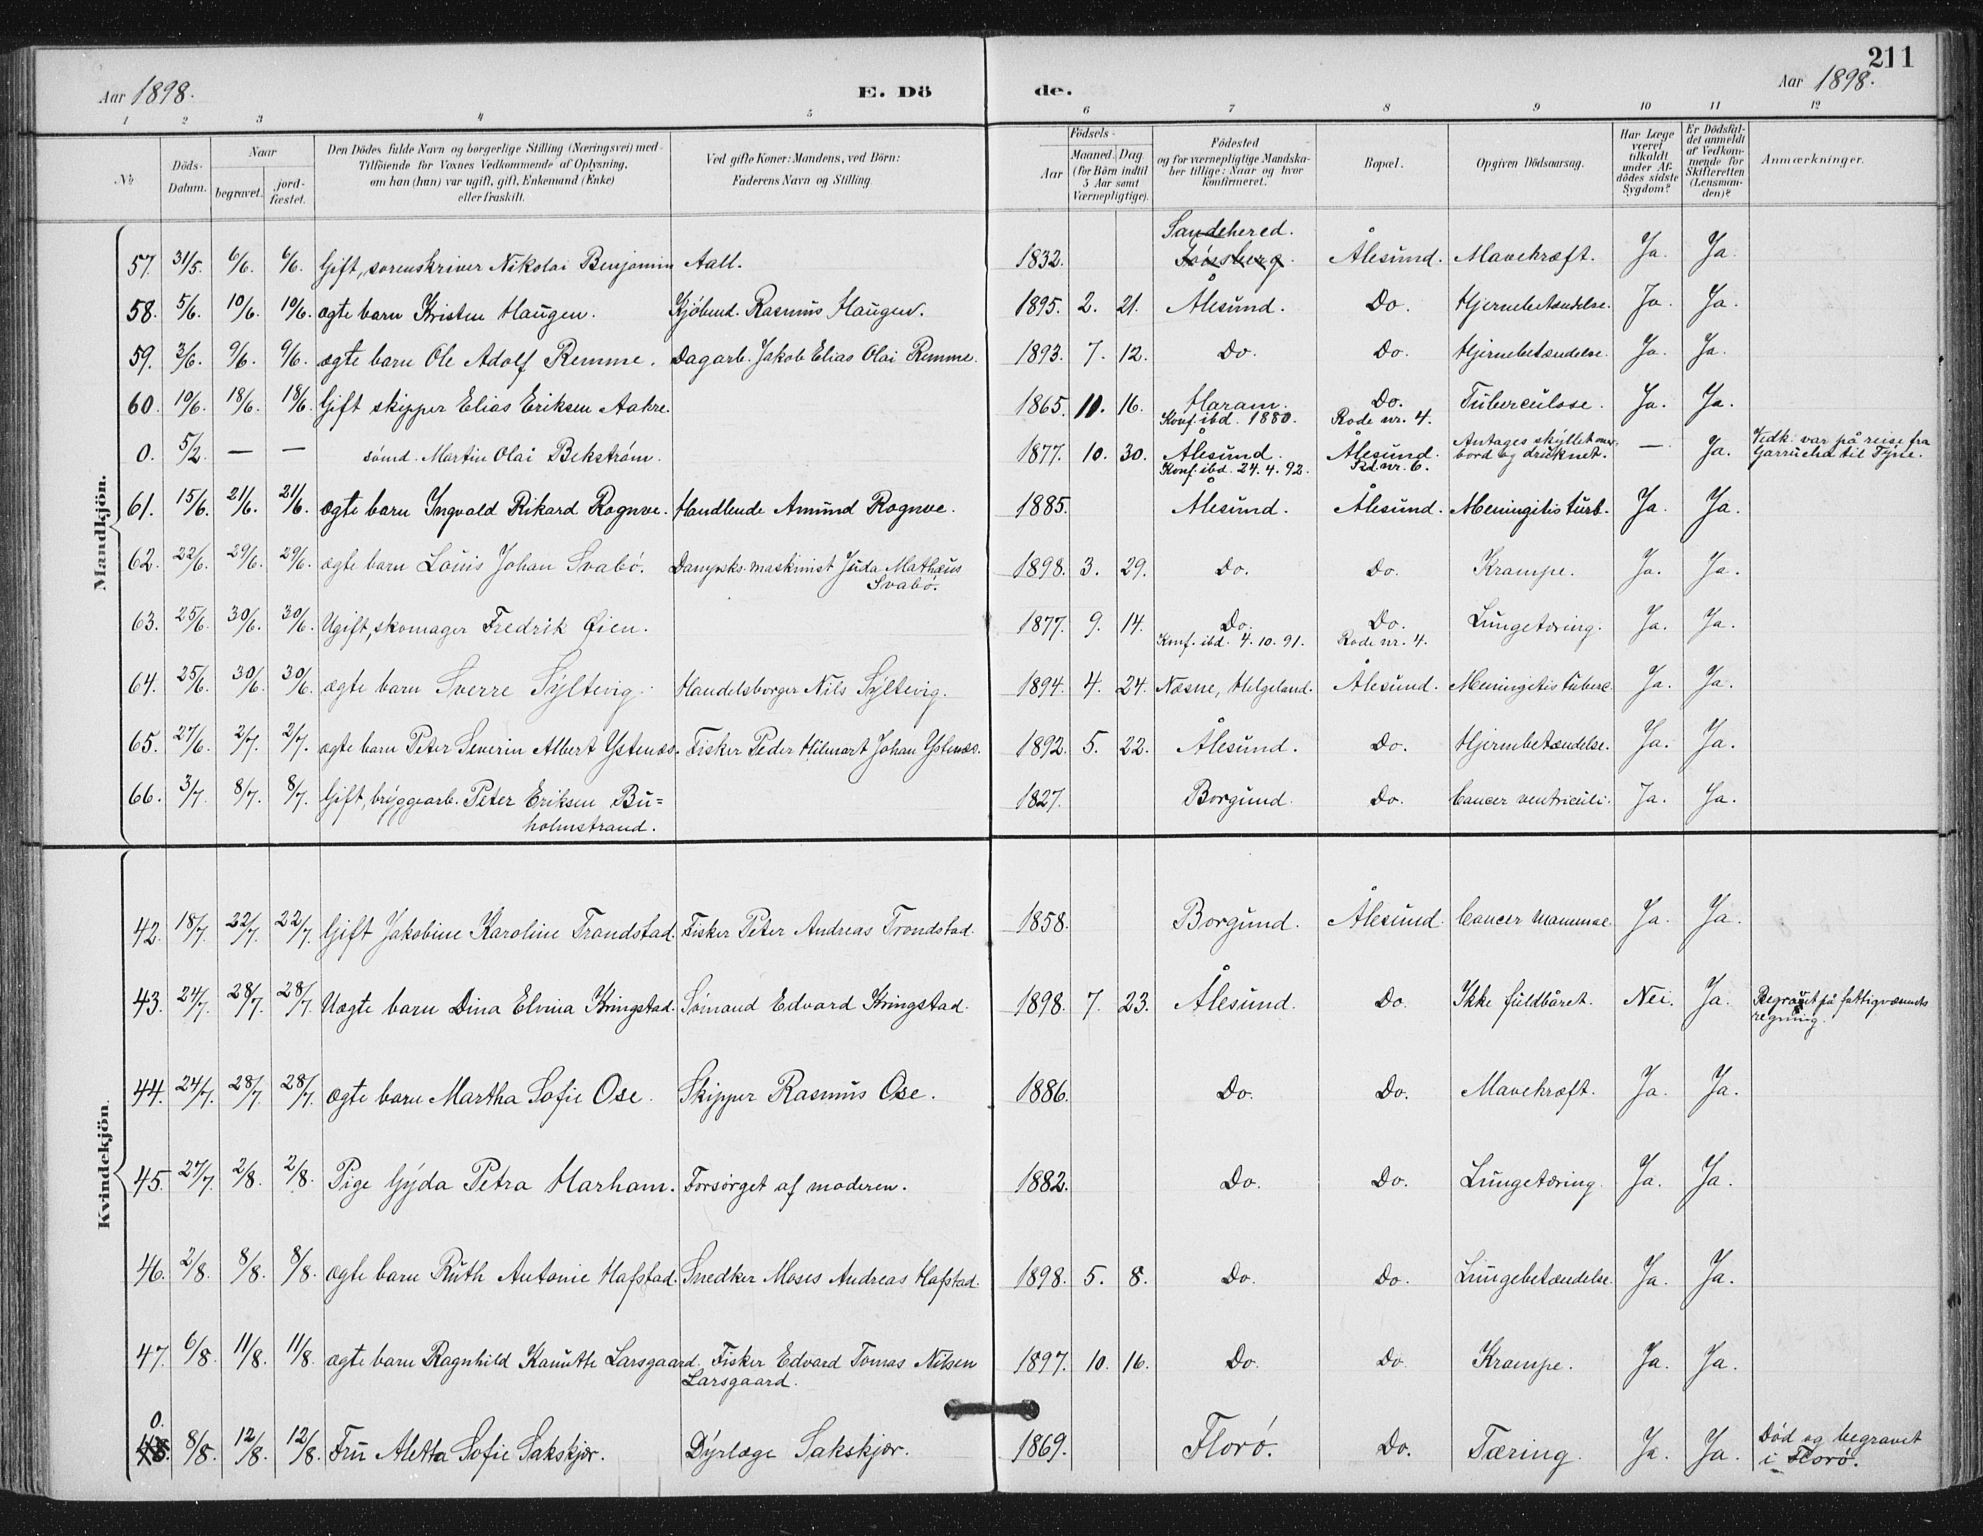 211
Aar 1898. E. Dö de. Aar 1898.
1 2 3 4 5 6 7 8 9 10 11 12
No. Döds-Datum. Naar begravet. jordfæstet. Den Dödes fulde Navn og borgerlige Stilling (Næringsvei) med Tilföiende for Voxnes Vedkommende af Oplysning, om han (hun) var ugift, gift, Enkemand (Enke) eller fraskilt. Ved gifte Koner: Mandens, ved Börn: Faderens Navn og Stilling. Födsels- Aar Maaned. Dag (for Börn indtil 5 Aar samt Værnepligtige). Födested og for værnepligtige Mandskaber tillige: Naar og hvor konfirmeret. Bopæl. Opgiven Dödsaarsag. Har Læge været tilkaldt under Afdödes sidste Sygdom? Er Dödsfaldet anmeldt af Vedkommende for Skifteretten (Lensmanden)? Anmærkninger.
Mandkjön.
Sandehered.
57. 31/5. 6/6. 6/6. Gift, sorenskriver Nikolai Benjamin Aall. 1832. Tönsberg. Ålesund. Mavekræft. Ja. Ja.
58. 5/6. 10/6. 10/6. ægte barn Kristen Haugen. Kjöbmd. Rasmus Haugen. 1895. 2. 21. Ålesund. Do. Hjernebetændelse. Ja. Ja.
59. 3/6. 9/6. 9/6. ægte barn Ole Adolf Remme. Dagarb. Jakob Elias Olai Remme. 1893. 7. 12. Do. Do. Hjernebetændelse. Ja. Ja.
60. 10/6. 18/6. 18/6. Gift skipper Elias Eriksen Aakre. 1865. 10. 16. Haram. Do. Tuberculose. Ja. Ja.
Konf. ibd. 1880. Rode nr. 4.
0. 5/2. — — sömd. Martin Olai Bekström. 1877. 10. 30. Ålesund. Ålesund. Antages skyllet overbord og druknet. — Ja. Vedk. var på reise fra Garrucha til Tyne.
Konf. ibd. 24. 4. 92. Rd nr. 6.
61. 15/6. 21/6. 21/6. ægte barn Ingvald Rikard Rognve. Handlende Amund Rognve. 1885. Ålesund. Ålesund. Meningitis turb. Ja. Ja.
62. 22/6. 29/6. 29/6. ægte barn Louis Johan Svabö. Dampsks. maskinist Juda Mathæus Svabö. 1898. 3. 29. Do. Do. Krampe. Ja. Ja.
63. 25/6. 30/6. 30/6. Ugift, skomager Fredrik Öien. 1877. 9. 14. Do. Do. Lungetæring. Ja. Ja.
Konf. ibd. 4. 10. 91. Rode nr. 4.
64. 25/6. 30/6. 30/6. ægte barn Sverre Syltevig. Handelsborger Nils Syltevig. 1894. 4. 24. Næsne, Helgeland. Ålesund. Meningitis tuberc. Ja. Ja.
65. 27/6. 2/7. 2/7. ægte barn Peter Severin Albert Ystenæs. Fisker Peder Hilmart Johan Ystenæs. 1892. 5. 22. Ålesund. Do. Hjernebetændelse. Ja. Ja.
66. 3/7. 8/7. 8/7. Gift, bryggearb. Peter Eriksen Bu=
holmstrand. 1827. Borgund. Do. Cancer ventriculi. Ja. Ja.
Kvindekjön.
42. 18/7. 22/7. 22/7. Gift Jakobine Karoline Trondstad. Fisker Peter Andreas Trondstad. 1858. Borgund. Ålesund. Cancer mammae. Ja. Ja.
43. 24/7. 28/7. 28/7. Uægte barn Dina Elvina Kringstad. Sömand Edvard Kringstad. 1898. 7. 23. Ålesund. Do. Ikke fuldbåret. Nei. Ja. Begravet på fattigvæsnets regning.
44. 24/7. 28/7. 28/7. ægte barn Martha Sofie Ose. Skipper Rasmus Ose. 1886. Do. Do. Mavekræft. Ja. Ja.
45. 27/7. 2/8. 2/8. Pige Gyda Petra Harham. Forsörget af moderen. 1882. Do. Do. Lungetæring. Ja. Ja.
46. 2/8. 8/8. 8/8. ægte barn Ruth Antonie Hafstad. Snedker Moses Andreas Hafstad. 1898. 5. 8. Do. Do. Lungebetændelse. Ja. Ja.
47. 6/8. 11/8. 11/8. ægte barn Ragnhild Kanutte Larsgaard. Fisker Edvard Tomas Nilsen Larsgaard. 1897. 10. 16. Do. Do. Krampe. Ja. Ja.
0.
48. 8/8. 12/8. 12/8. Fru Aletta Sofie Sakskjær. Dyrlæge Sakskjær. 1869. Florö. Do. Tæring. Ja. Ja. Död og begravet i Florö.